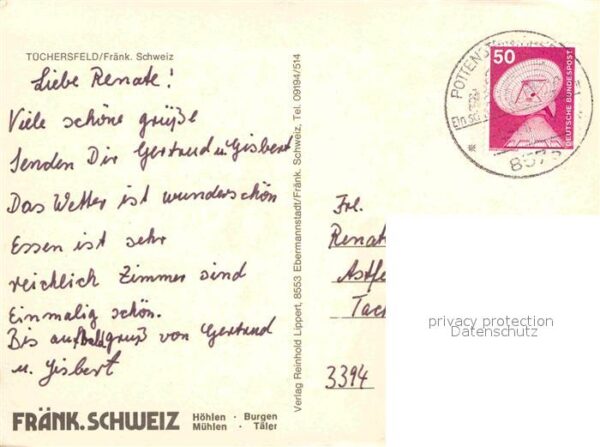 TÜCHERSFELD/Fränk. Schweiz
Liebe Renate!
Viele schöne grüße
Senden Dir Gertraud u Gisbert
Das Wetter ist wunderschön
Essen ist sehr
reichlich Zimmer sind
Einmalig schön.
Bis auf bald gruß von Gertraud
u. Gisbert
FRÄNK. SCHWEIZ
Höhlen · Burgen
Mühlen · Täler
Verlag Reinhold Lippert, 8553 Ebermannstadt/Fränk. Schweiz, Tel. 09194/514
50
DEUTSCHE BUNDESPOST
POTTENST
857
Frl.
Renat
Astfe
Tac
3394
privacy protection
Datenschutz